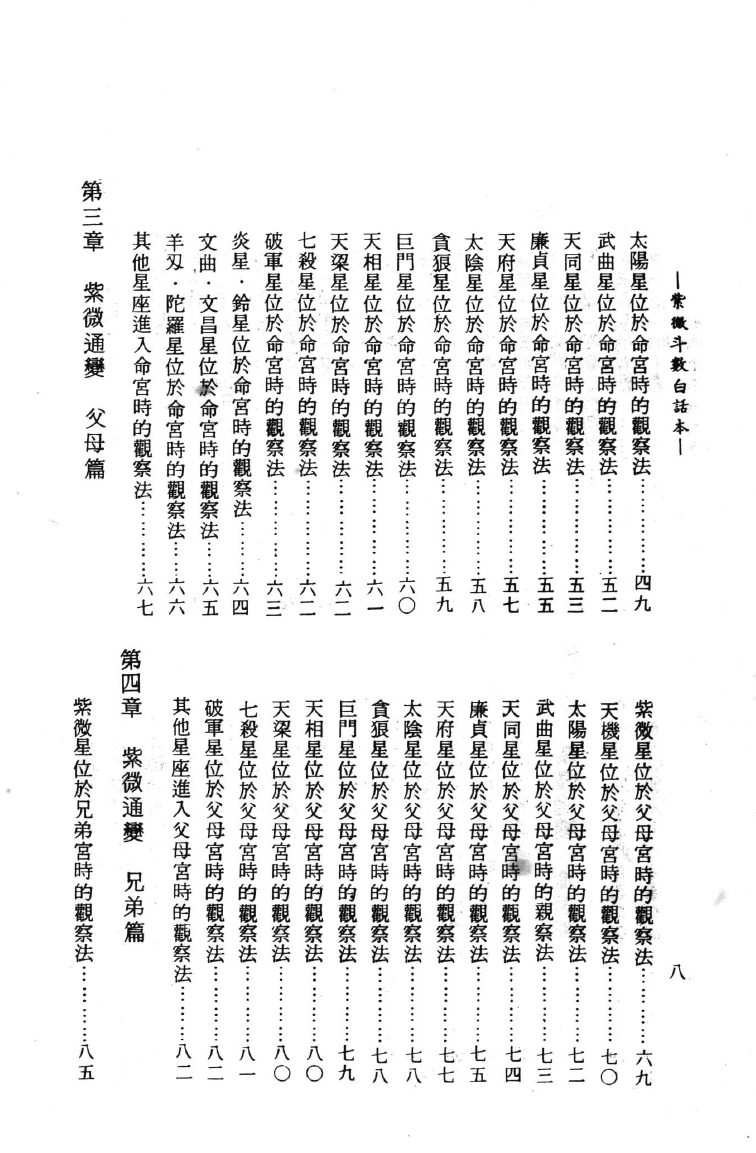 —紫微斗數白話本—
太陽星位於命宮時的觀察法…………四九
武曲星位於命宮時的觀察法…………五二
天同星位於命宮時的觀察法…………五三
廉貞星位於命宮時的觀察法…………五五
天府星位於命宮時的觀察法…………五七
太陰星位於命宮時的觀察法…………五八
貪狼星位於命宮時的觀察法…………五九
巨門星位於命宮時的觀察法…………六〇
天相星位於命宮時的觀察法…………六一
天梁星位於命宮時的觀察法…………六二
七殺星位於命宮時的觀察法…………六二
破軍星位於命宮時的觀察法…………六三
炎星.鈴星位於命宮時的觀察法………六四
文曲.文昌星位於命宮時的觀察法……六五
羊刄.陀羅星位於命宮時的觀察法……六六
其他星座進入命宮時的觀察法…………六七
第三章 紫微通變 父母篇
紫微星位於父母宮時的觀察法…………六九
天機星位於父母宮時的觀察法…………七〇
太陽星位於父母宮時的觀察法…………七二
武曲星位於父母宮時的親察法…………七三
天同星位於父母宮時的觀察法…………七四
廉貞星位於父母宮時的觀察法…………七五
天府星位於父母宮時的觀察法…………七七
太陰星位於父母宮時的觀察法…………七八
貪狼星位於父母宮時的觀察法…………七八
巨門星位於父母宮時的觀察法…………七九
天相星位於父母宮時的觀察法…………八〇
天梁星位於父母宮時的觀察法…………八〇
七殺星位於父母宮時的觀察法…………八一
破軍星位於父母宮時的觀察法…………八二
其他星座進入父母宮時的觀察法………八二
第四章 紫微通變 兄弟篇
紫微星位於兄弟宮時的觀察法…………八五
八